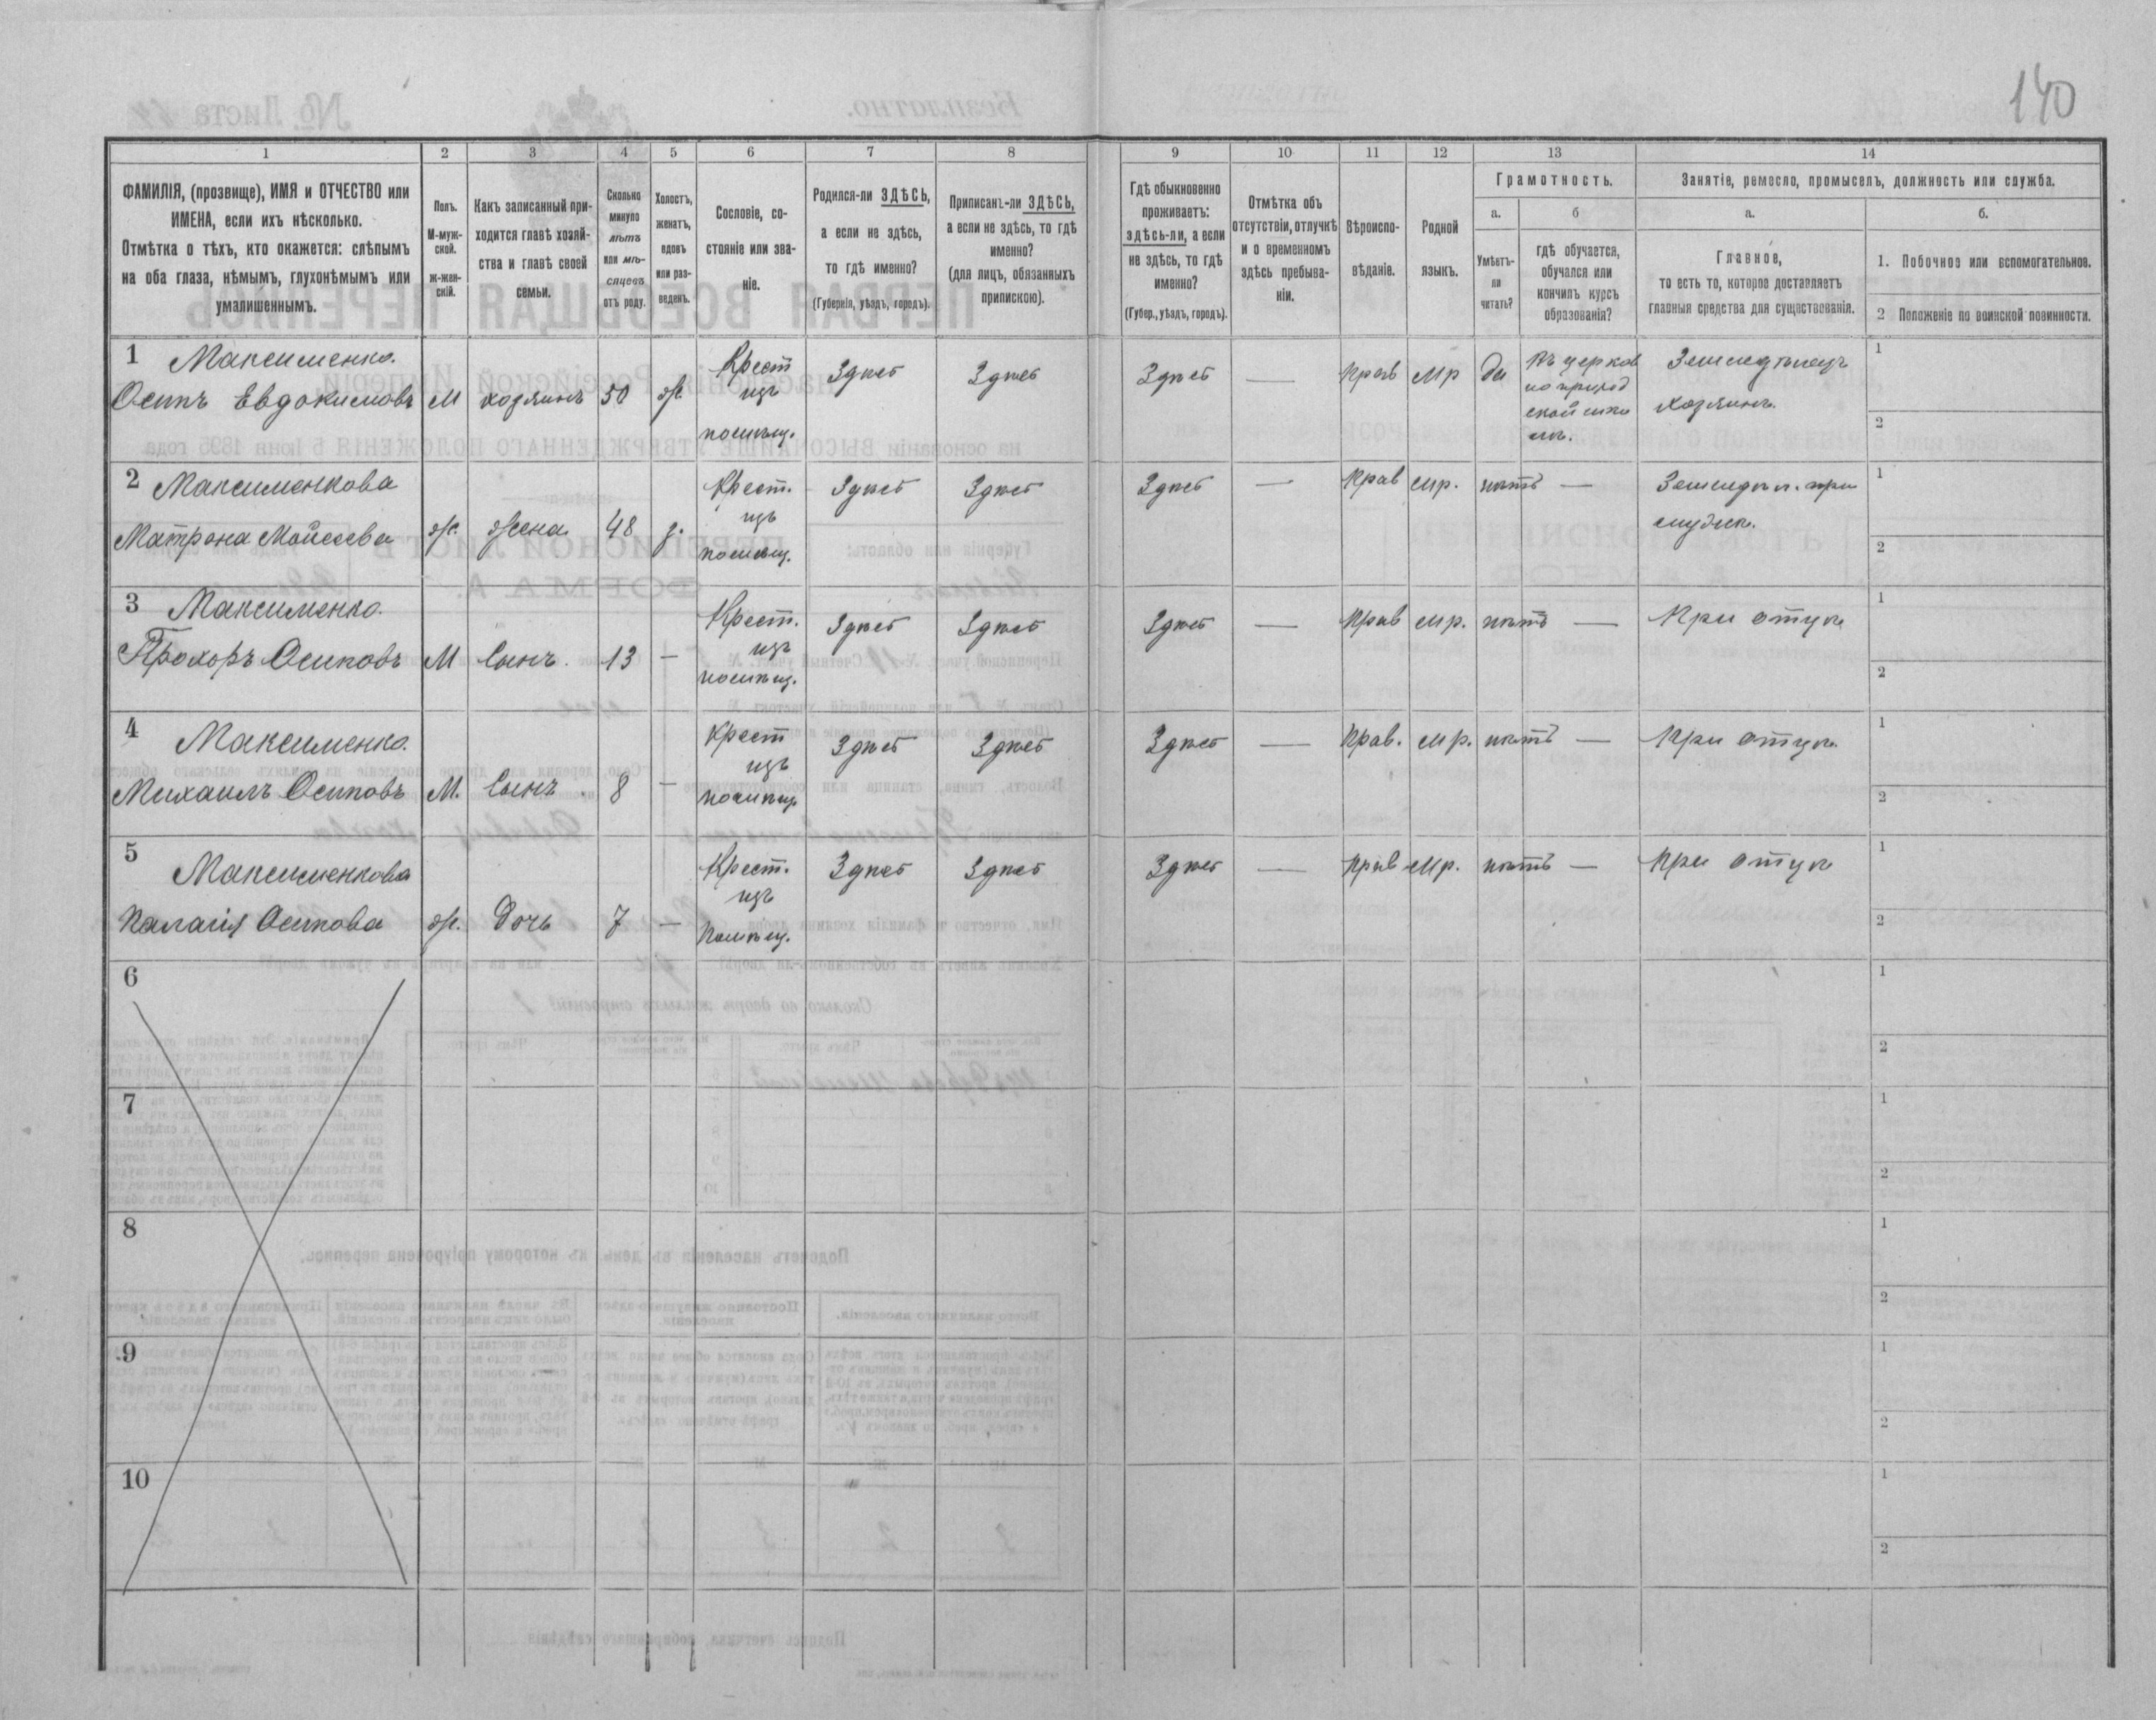 140
1
2
3
4
5
6
7
8
9
10
11
12
13
14
ФАМИЛІЯ, (прозвище), ИМЯ и ОТЧЕСТВО или
ИМЕНА, если ихъ нѣсколько.
Отмѣтка о тѣхъ, кто окажется: слѣпымъ
на оба глаза, нѣмымъ, глухонѣмымъ или
умалишеннымъ.
Полъ.
М-муж-
ской.
ж-жен-
скій.
Какъ записанный при-
ходится главѣ хозяй-
ства и главѣ своей
семьи.
Сколько
минуло
лѣтъ
или мѣ-
сяцевъ
отъ роду.
Холостъ,
женатъ,
вдовъ
или раз-
веденъ.
Сословіе, со-
стояніе или зва-
ніе.
Родился-ли ЗДѢСЬ,
а если не здѣсь,
то гдѣ именно?
(Губернія, уѣздъ, городъ).
Приписанъ-ли ЗДѢСЬ,
а если не здѣсь, то гдѣ
именно?
(для лицъ, обязанныхъ
припискою).
Гдѣ обыкновенно
проживаетъ:
здѣсь-ли, а если
не здѣсь, то гдѣ
именно?
(Губер., уѣздъ, городъ).
Отмѣтка объ
отсутствіи, отлучкѣ
и о временномъ
здѣсь пребыва-
ніи.
Вѣроиспо-
вѣданіе.
Родной
языкъ.
Грамотность.
а.
Умѣетъ-
ли
читать?
б
гдѣ обучается,
обучался или
кончилъ курсъ
образованія?
Занятіе, ремесло, промыселъ, должность или служба.
а.
Главное,
то есть то, которое доставляетъ
главныя средства для существованія.
б.
1. Побочное или вспомогательное.
2 Положеніе по воинской повинности.
1 Максименко.
Осипъ Евдокимовъ
М
хозяинъ
50
ж.
Крест
изъ
помѣщ.
Здѣсь
Здѣсь
Здѣсь
—
Прав
мр
да
Въ церков
но приход
ской шко
лѣ.
Земледѣлецъ
хозяинъ.
1
2
2 Максименкова
Матрона Мойсеева
ж.
жена.
48
з.
Крест.
изъ
помѣщ.
Здѣсь
Здѣсь
Здѣсь
—
Прав
мр.
нѣтъ
—
Земледѣл. при
мужѣ.
1
2
3 Максименко.
Прохоръ Осиповъ
М
Сынъ.
13
—
Крест.
изъ
помѣщ.
Здѣсь
Здѣсь
Здѣсь
—
Прав
мр.
нѣтъ
—
При отцѣ
1
2
4 Максименко.
Михаилъ Осиповъ
М.
Сынъ.
8
—
Крест
изъ
помѣщ
Здѣсь
Здѣсь
Здѣсь
—
Прав.
мр.
нѣтъ
—
При отцѣ.
1
2
5 Максименкова
Палагія Осипова
ж.
Дочь
7
—
Крест.
изъ
Помѣщ.
Здѣсь
Здѣсь
Здѣсь
—
Прав
мр.
нѣтъ
—
При отцѣ
1
2
6
1
2
7
1
2
8
1
2
9
1
2
10
1
2